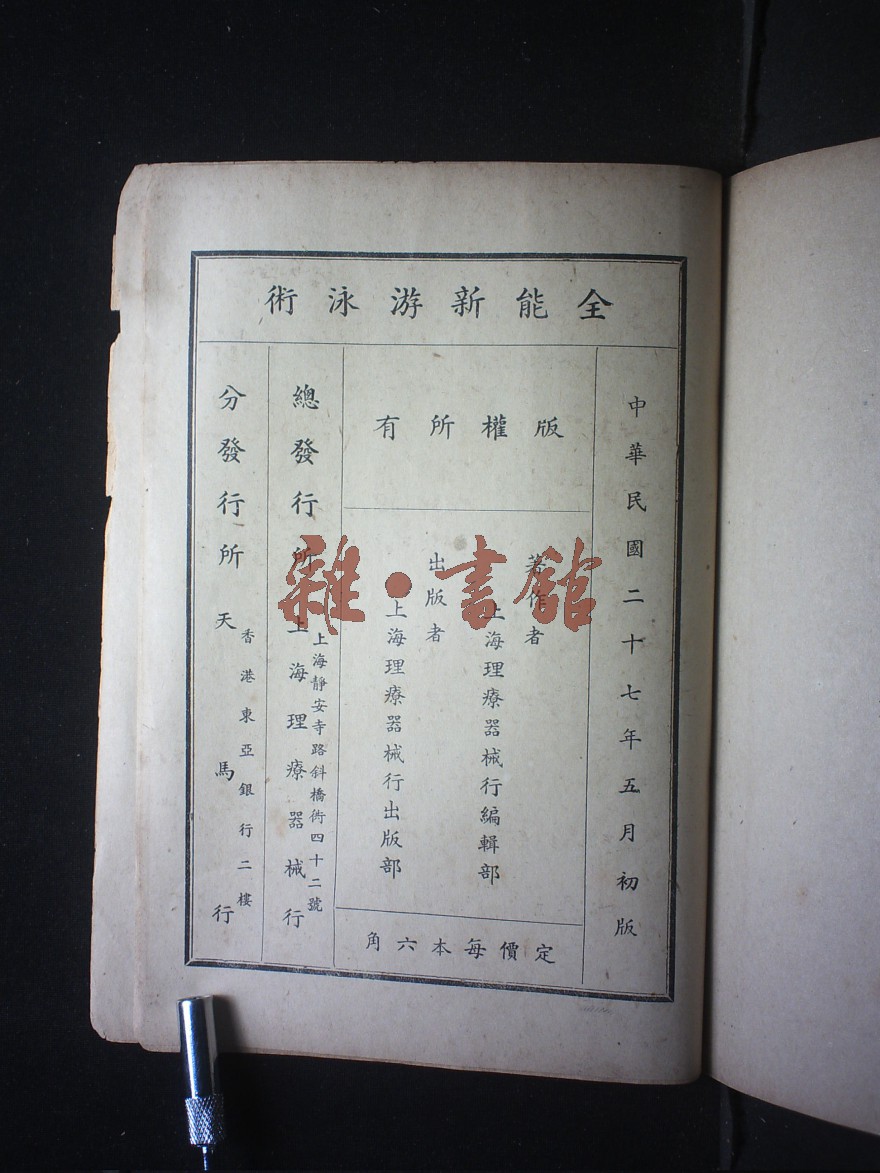 全能新游泳術
中華民國二十七年五月初版
版權所有
著作者
上海理療器械行編輯部
出版者
上海理療器械行出版部
定價每本六角
總發行所
上海靜安寺路斜橋衖四十二號
上海理療器械行
分發行所
香港東亞銀行二樓
天馬行
雜·書館